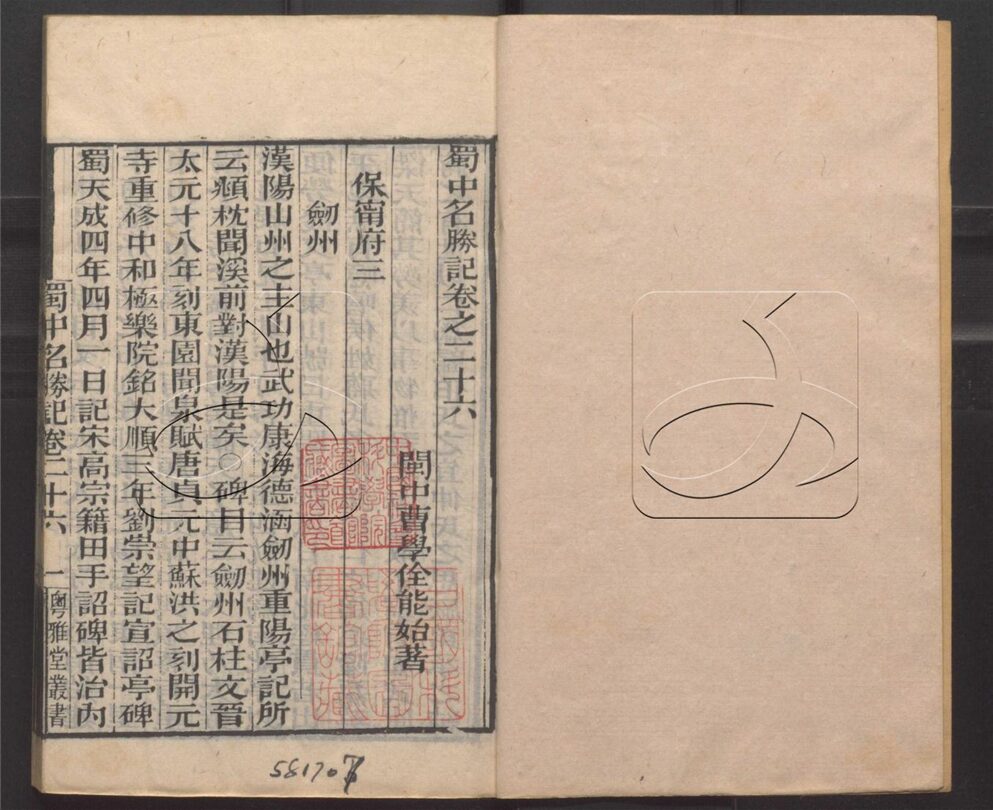 蜀中名勝記卷之二十六
閩中曹學佺能始著
保甯府三
劒州
漢陽山州之主山也武功康海德涵劒州重陽亭記所
云頫枕聞溪前對漢陽是矣○碑目云劒州石柱文晉
太元十八年刻東園聞泉賦唐貞元中蘇洪之刻開元
寺重修中和極樂院銘大順三年劉崇望記宣詔亭碑
蜀天成四年四月一日記宋高宗籍田手詔碑皆治內
蜀中名勝記卷二十六 一 粵雅堂叢書